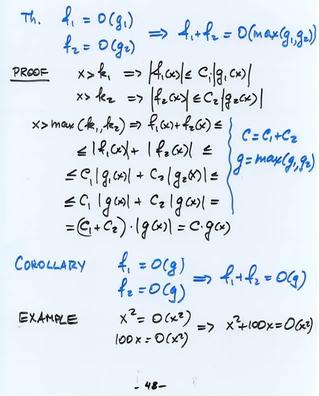 Th. f₁ = O(g₁)
f₂ = O(g₂) ⟹ f₁+f₂ = O(max(g₁,g₂))
PROOF x>k₁ ⟹ |f₁(x)| ≤ C₁|g₁(x)|
x>k₂ ⟹ |f₂(x)| ≤ C₂|g₂(x)|
x>max(k₁,k₂) ⟹ f₁(x)+f₂(x) ≤
≤ |f₁(x)| + |f₂(x)| ≤
≤ C₁|g₁(x)| + C₂|g₂(x)| ≤
≤ C₁|g(x)| + C₂|g(x)| =
= (C₁+C₂)·|g(x)| = C·g(x)
C = C₁+C₂
g = max(g₁,g₂)
COROLLARY f₁ = O(g)
f₂ = O(g) ⟹ f₁+f₂ = O(g)
EXAMPLE x² = O(x²)
100x = O(x²) ⟹ x²+100x = O(x²)
- 48 -